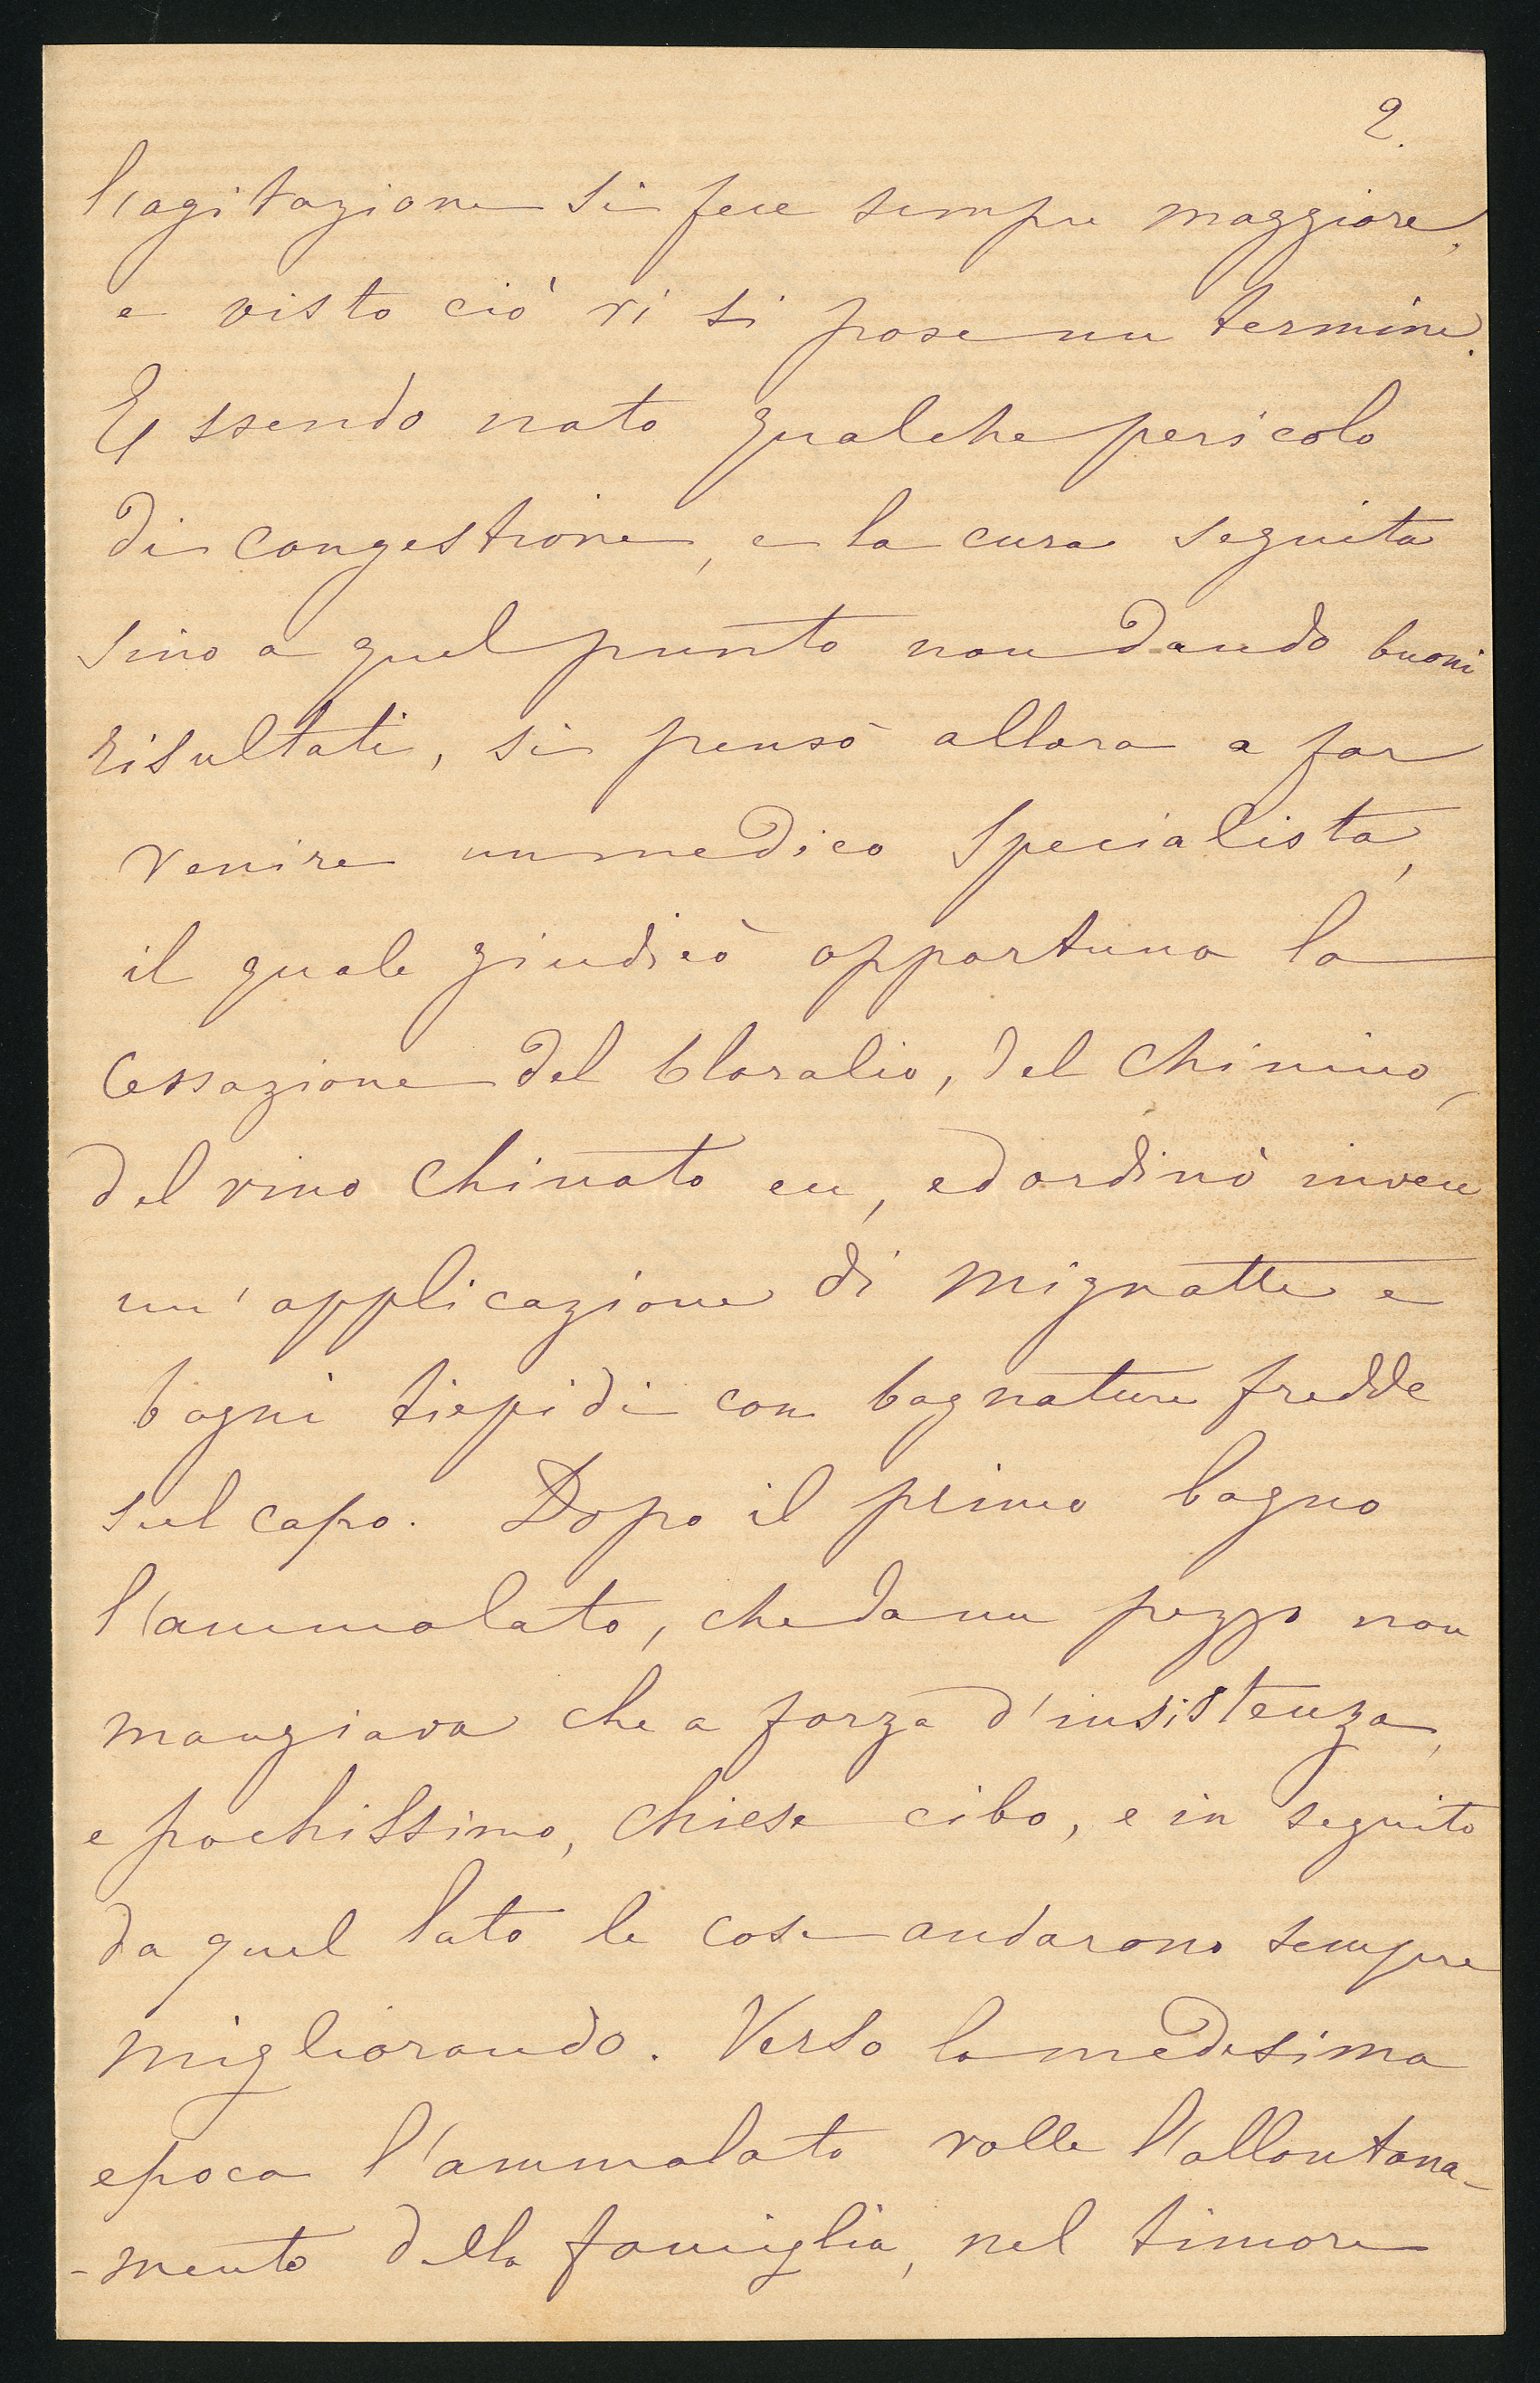 2.
l'agitazione si fece sempre maggiore,
e visto ciò vi si pose un termine.
Essendo nato qualche pericolo
di congestione, e la cura seguita
sino a quel punto non dando buoni
risultati, si pensò allora a far
venire un medico specialista,
il quale giudicò opportuna la
Cessazione del Cloralio, del Chinino,
del vino Chinato ecc, ed ordinò invece
un' applicazione di mignatte e
bagni tiepidi con bagnature fredde
sul capo. Dopo il primo bagno
l'ammalato, che da un pezzo non
mangiava che a forza d'insistenza,
e pochissimo, chiese cibo, e in seguito
da quel lato le cose andarono sempre
migliorando. Verso la medesima
epoca l'ammalato volle l'allontana-
-mento della famiglia, nel timore